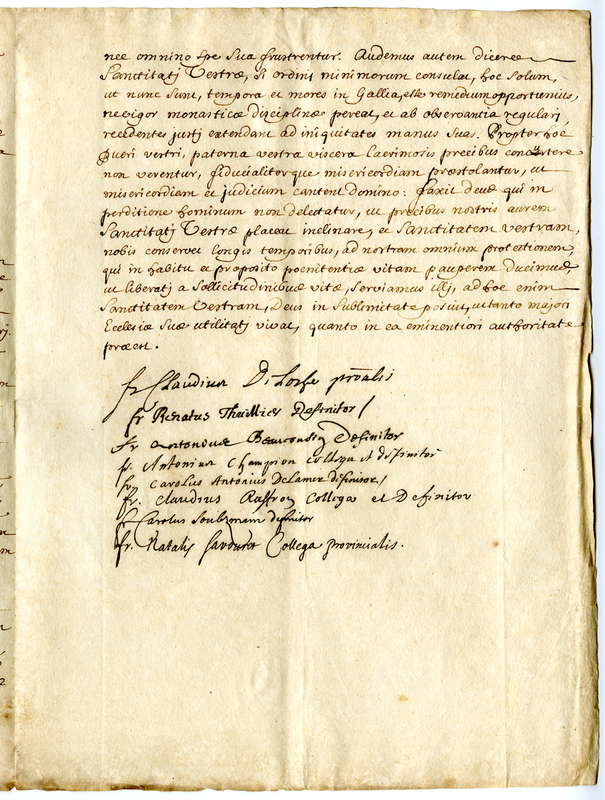 nec omnino spe sua frustrentur. Audemus autem dicere
Sanctitatj Vestræ, si ordinj minimorum consulat, hoc solum,
ut nunc sunt, tempora et mores in Gallia, esse remedium opportunius,
ne vigor monasticæ disciplinæ pereat, et ab observantia regularj
recedentes justj extendant ad iniquitates manus suas. Propter hoc
pueri vestri, paterna vestra viscera lacrimosis precibus
non verentur, fiducialiterque misericordiam præstolantur, ut
misericordiam et judicium cantent domino: faxit deus qui in
perditione hominum non delectatur, ut precibus nostris aurem
Sanctitatj Vestræ placeat inclinare, et Sanctitatem Vestram,
nobis conservet longis temporibus, ad nostram omnium protectionem,
qui in habitu et proposito pœnitentiæ vitam pauperem ducimus,
ut liberatj a sollicitudinibus vitæ, serviamus illj, ad hoc enim
Sanctitatem Vestram, Deus in sublimitate posuit, ut tanto majori
Ecclesiæ suæ utilitatj vivat, quanto in ea eminentiori authoritate
præest.
fr Claudius
fr Renatus Definitor
fr Antonius Definitor
fr. Antonius Champion Collega et definitor
fr Carolus Antonius Delamer definitor
fr. Claudius Raffron Collega et Definitor
fr Carolus definitor
fr. Natalis Collega provincialis.